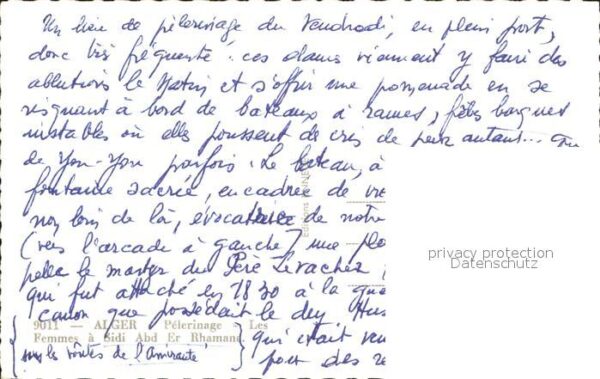 Un lieu de pèlerinage du Vendredi, en plein port,
donc très fréquenté. ces dames viennent y faire des
ablutions le Matin et s'offrir une promenade en se
risquant à bord de bateaux à rames, barques
instables où elles poussent de cris de peur autant... que
de You-You parfois. Le bateau, à
fontaine sacrée, encadrée de
non loin de là, évocatrice de notre
(vers l'arcade à gauche) une
pelle le martyr du Père Levacher,
qui fut attaché en 1830 à la
canon que possédait le dey Hus
9011 — ALGER - Pèlerinage - Les
Femmes à Sidi Abd Er Rhamane
qui était
sous les voûtes de l'Amirauté
pour des
Editions
privacy protection
Datenschutz